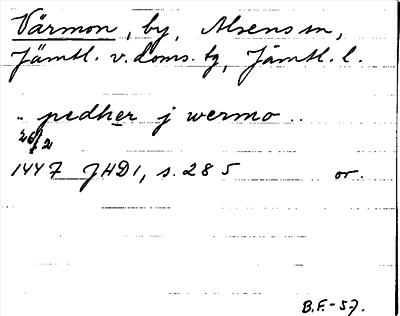 Värmon, by, Alsens sn,
Jämtl. v. doms. tg, Jämtl. l.
.. pedher j wermo ..
26/2
1447 JHD1, s. 285 or.
B.F.-57.